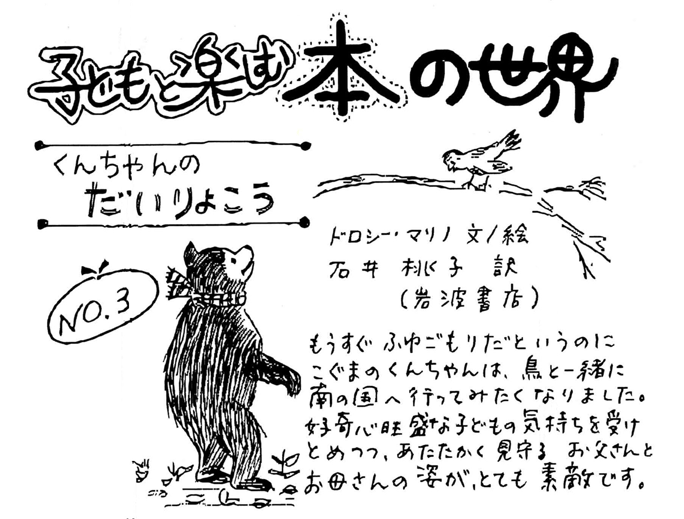 子どもと楽しむ本の世界
くんちゃんの
だいりょこう
NO.3
ドロシー・マリノ 文/絵
石井桃子 訳
(岩波書店)
もうすぐふゆごもりだというのに
こぐまのくんちゃんは、鳥と一緒に
南の国へ行ってみたくなりました。
好奇心旺盛な子どもの気持ちを受け
とめつつ、あたたかく見守る お父さんと
お母さんの姿が、とても素敵です。